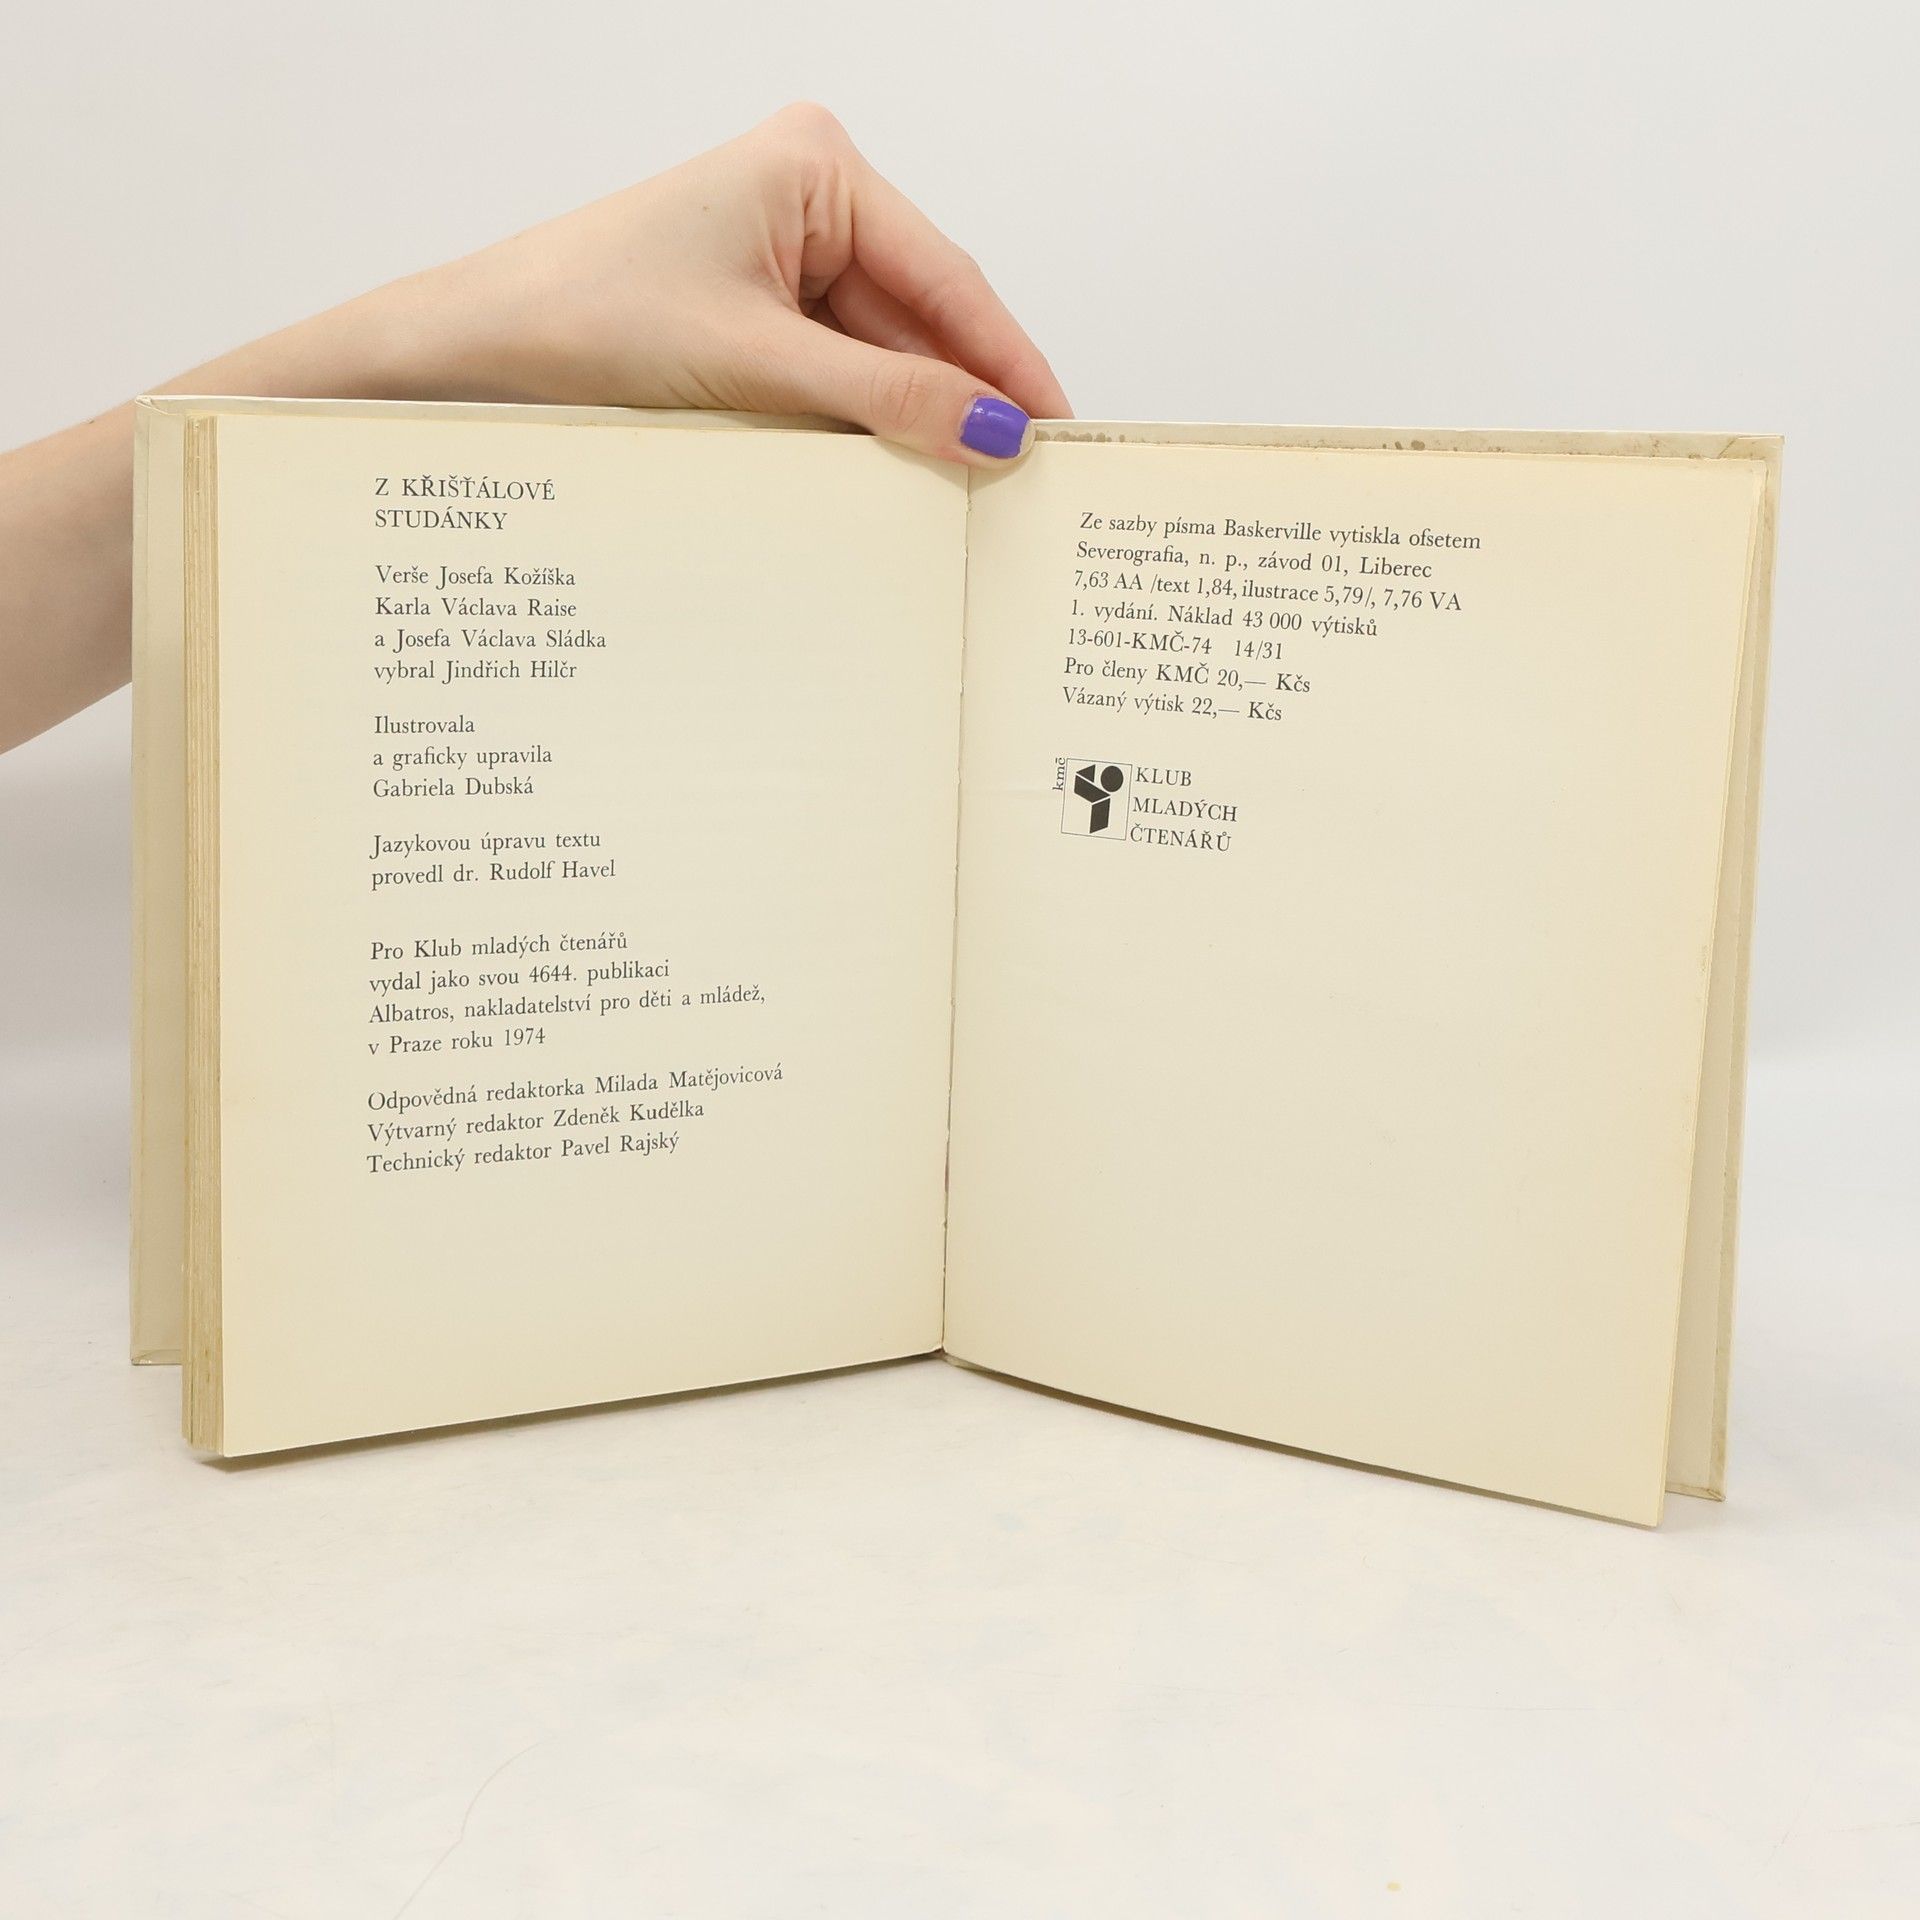 Z KŘIŠŤÁLOVÉ
STUDÁNKY
Verše Josefa Kožíška
Karla Václava Raise
a Josefa Václava Sládka
vybral Jindřich Hilčr
Ilustrovala
a graficky upravila
Gabriela Dubská
Jazykovou úpravu textu
provedl dr. Rudolf Havel
Pro Klub mladých čtenářů
vydal jako svou 4644. publikaci
Albatros, nakladatelství pro děti a mládež,
v Praze roku 1974
Odpovědná redaktorka Milada Matějovicová
Výtvarný redaktor Zdeněk Kudělka
Technický redaktor Pavel Rajský
Ze sazby písma Baskerville vytiskla ofsetem
Severografia, n. p., závod 01, Liberec
7,63 AA /text 1,84, ilustrace 5,79/, 7,76 VA
1. vydání. Náklad 43 000 výtisků
13-601-KMČ-74 14/31
Pro členy KMČ 20,— Kčs
Vázaný výtisk 22,— Kčs
kmč
KLUB
MLADÝCH
ČTENÁŘŮ